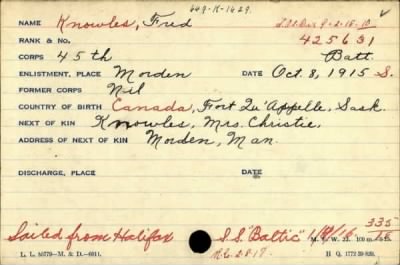 649-K-1629.
NAME Knowles, Fred
RANK & NO. 425631
CORPS 45th Batt.
ENLISTMENT, PLACE Morden DATE Oct. 8, 1915 S.
FORMER CORPS Nil
COUNTRY OF BIRTH Canada, Fort Qu'Appelle, Sask.
NEXT OF KIN Knowles, Mrs. Christie,
ADDRESS OF NEXT OF KIN Morden, Man.
DISCHARGE, PLACE DATE
Sailed from Halifax S.S. "Baltic" 335
L. L. 50779—M. & D.—6011. H. Q. 1772-39-839.